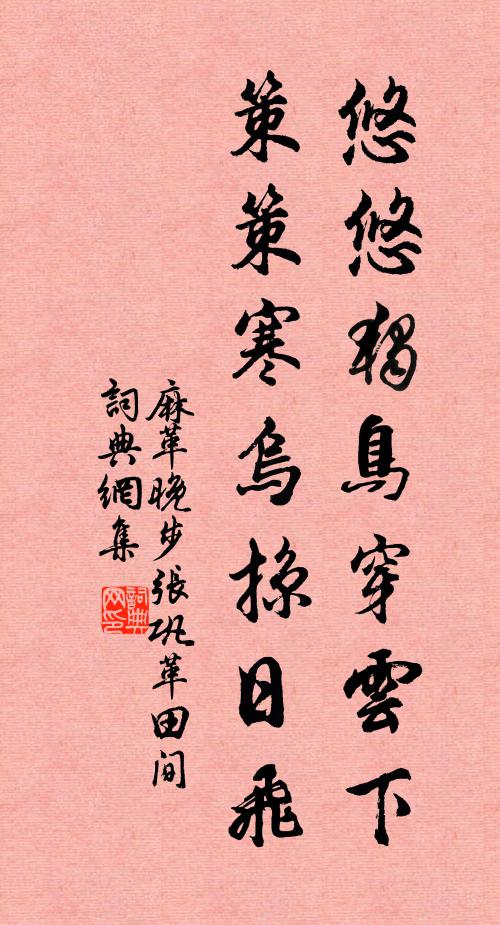 悠悠獨鳥穿雲下
策策寒烏掠日飛
麻革晚步張巩革田間
詞典網集
詞典网印